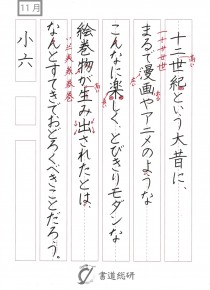 11月
十二世紀という大昔に、
まるで漫画やアニメのような
こんなに楽しく、とびきりモダンな
絵巻物が生み出されたとは、
なんとすてきでおどろくべきことだろう。
小六
書道総研